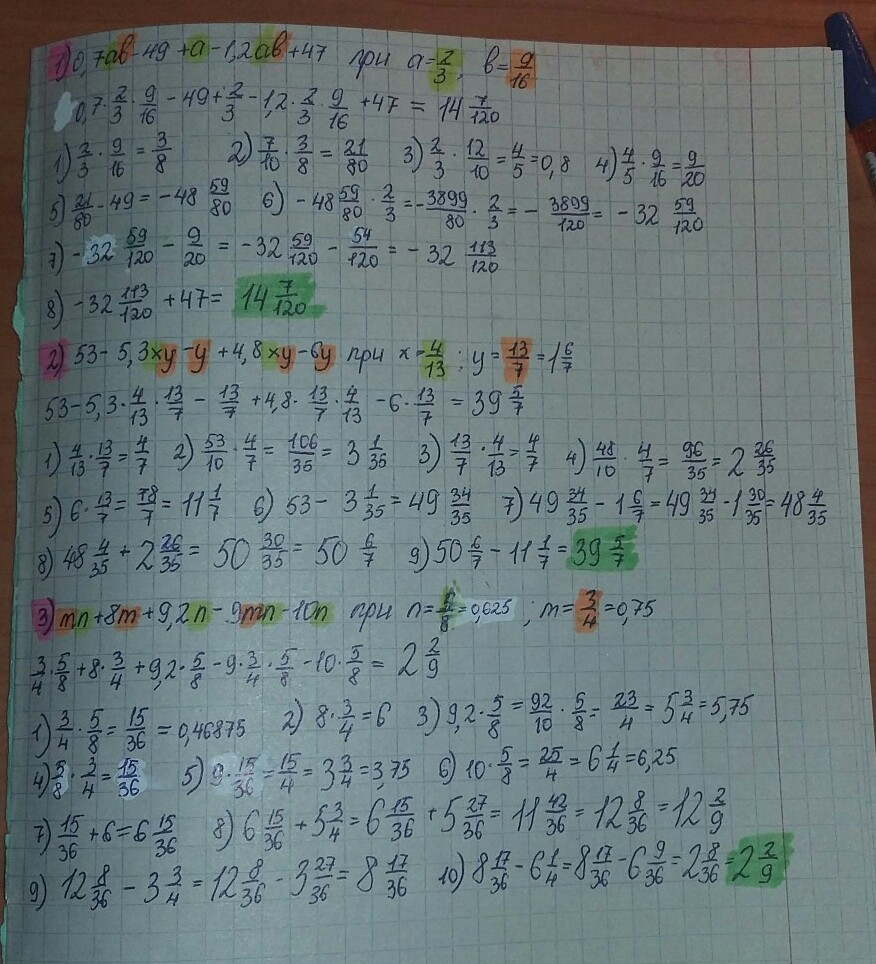 1) 0,7ab - 49 + a - 1,2ab + 47 при a = 2/3; b = 9/16
0,7 · 2/3 · 9/16 - 49 + 2/3 - 1,2 · 2/3 · 9/16 + 47 = 14 7/120
1) 2/3 · 9/16 = 3/8 2) 7/10 · 3/8 = 21/80 3) 2/3 · 12/10 = 4/5 = 0,8 4) 4/5 · 9/16 = 9/20
5) 21/80 - 49 = -48 59/80 6) -48 59/80 · 2/3 = -3899/80 · 2/3 = - 3899/120 = -32 59/120
7) -32 59/120 - 9/20 = -32 59/120 - 54/120 = -32 113/120
8) -32 113/120 + 47 = 14 7/120
2) 53 - 5,3xy - y + 4,8xy - 6y при x = 4/13; y = 13/7 = 1 6/7
53 - 5,3 · 4/13 · 13/7 - 13/7 + 4,8 · 13/7 · 4/13 - 6 · 13/7 = 39 5/7
1) 4/13 · 13/7 = 4/7 2) 53/10 · 4/7 = 106/35 = 3 1/35 3) 13/7 · 4/13 = 4/7 4) 48/10 · 4/7 = 96/35 = 2 26/35
5) 6 · 13/7 = 78/7 = 11 1/7 6) 53 - 3 1/35 = 49 34/35 7) 49 34/35 - 1 6/7 = 49 34/35 - 1 30/35 = 48 4/35
8) 48 4/35 + 2 26/35 = 50 30/35 = 50 6/7 9) 50 6/7 - 11 1/7 = 39 5/7
3) mn + 8m + 9,2n - 9mn - 10n при n = 5/8 = 0,625; m = 3/4 = 0,75
3/4 · 5/8 + 8 · 3/4 + 9,2 · 5/8 - 9 · 3/4 · 5/8 - 10 · 5/8 = 2 2/9
1) 3/4 · 5/8 = 15/36 = 0,46875 2) 8 · 3/4 = 6 3) 9,2 · 5/8 = 92/10 · 5/8 = 23/4 = 5 3/4 = 5,75
4) 5/8 · 3/4 = 15/36 5) 9 · 15/36 = 15/4 = 3 3/4 = 3,75 6) 10 · 5/8 = 25/4 = 6 1/4 = 6,25
7) 15/36 + 6 = 6 15/36 8) 6 15/36 + 5 3/4 = 6 15/36 + 5 27/36 = 11 42/36 = 12 8/36 = 12 2/9
9) 12 8/36 - 3 3/4 = 12 8/36 - 3 27/36 = 8 17/36 10) 8 17/36 - 6 1/4 = 8 17/36 - 6 9/36 = 2 8/36 = 2 2/9